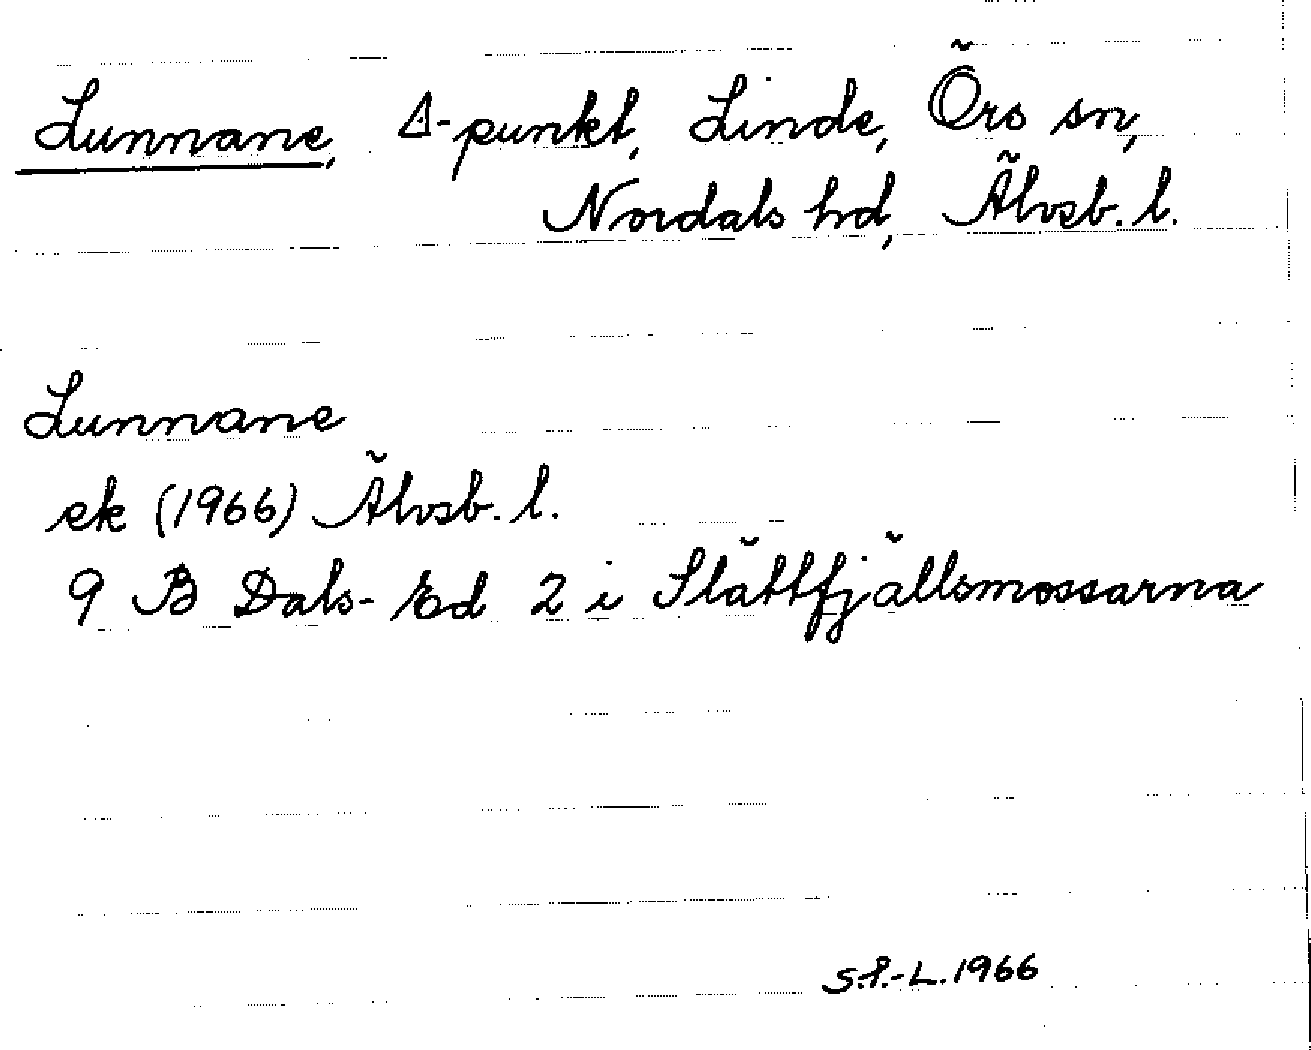 Lunnane, Δ-punkt, Linde, Örs sn,
Nordals hd, Älvsb. l.
Lunnane
ek (1966) Älvsb. l.
9 B Dals-Ed 2 i Slättfjällsmossarna
S.P.-L. 1966